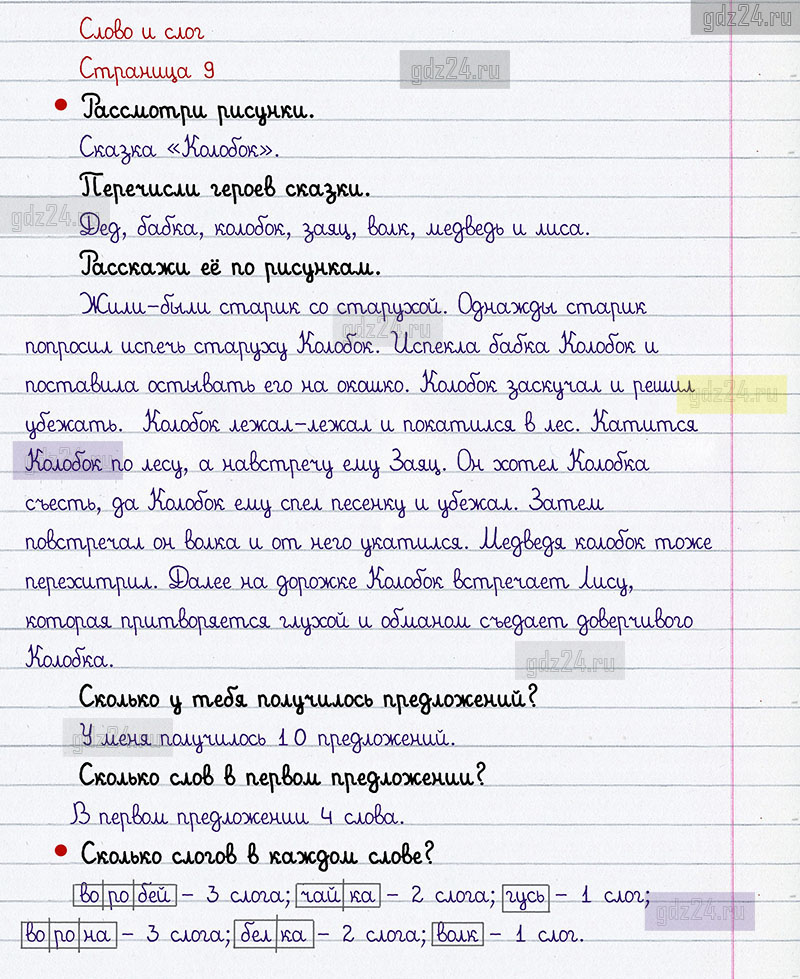 gdz24.ru
Слово и слог
Страница 9
gdz24.ru
• Рассмотри рисунки.
Сказка «Колобок».
Перечисли героев сказки.
gdz24.ru
Дед, бабка, колобок, заяц, волк, медведь и лиса.
Расскажи её по рисункам.
Жили-были старик со старухой. Однажды старик
gdz24.ru
попросил испечь старуху Колобок. Испекла бабка Колобок и
поставила остывать его на окошко. Колобок заскучал и решил
gdz24.ru
убежать. Колобок лежал-лежал и покатился в лес. Катится
Колобок по лесу, а навстречу ему Заяц. Он хотел Колобка
gdz24.ru
съесть, да Колобок ему спел песенку и убежал. Затем
повстречал он волка и от него укатился. Медведя колобок тоже
перехитрил. Далее на дорожке Колобок встречает Лису,
которая притворяется глухой и обманом съедает доверчивого
Колобка.
gdz24.ru
Сколько у тебя получилось предложений?
У меня получилось 10 предложений.
gdz24.ru
Сколько слов в первом предложении?
В первом предложении 4 слова.
• Сколько слогов в каждом слове?
во|ро|бей – 3 слога; чай|ка – 2 слога; гусь – 1 слог;
gdz24.ru
во|ро|на – 3 слога; бел|ка – 2 слога; волк – 1 слог.